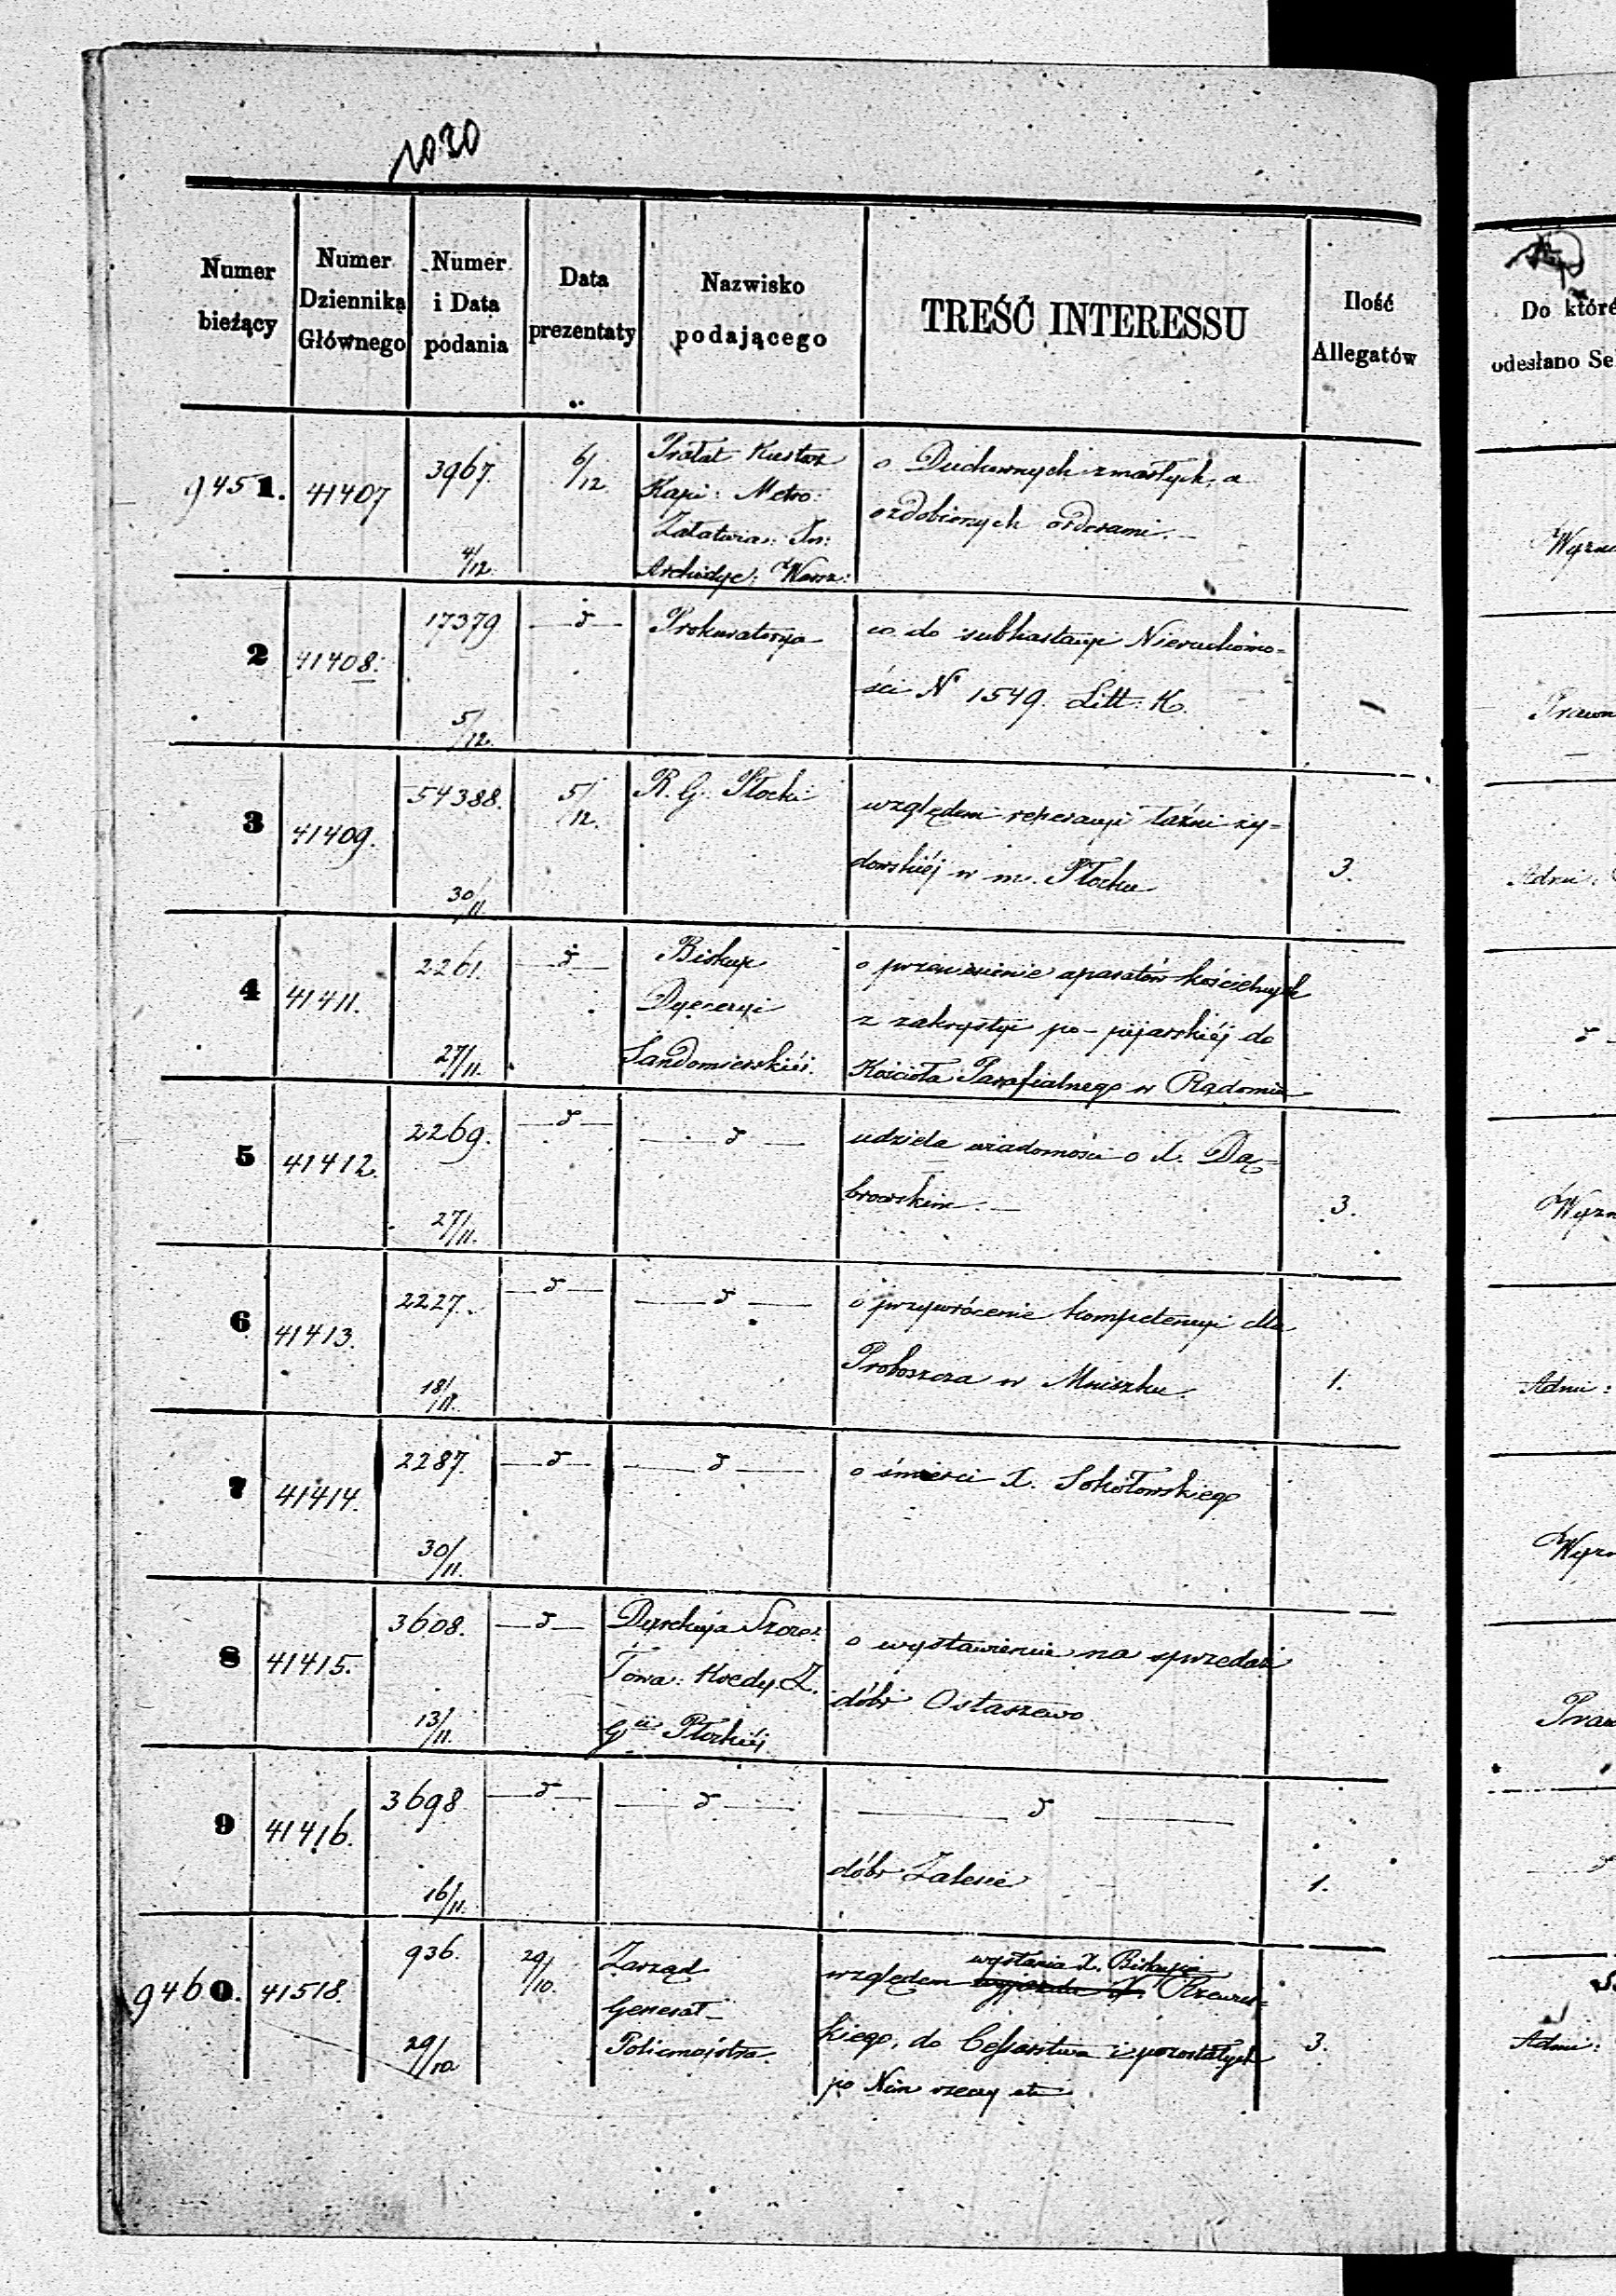 1020
Numer bieżący
Numer Dziennika Głównego
Numer i Data podania
Data prezentaty
Nazwisko podającego
TREŚĆ INTERESSU
Ilość Allegatów
9451. 41407 3967. 4/12. 6/12
Prałat Kustosz
Kapi: Metro:
Załatwia: In:
Archidyec: Warsz:
o Duchownych zmarłych, a
ozdobionych orderami. —
2 41408. 17379 5/12. — d —
Prokuratorya
co do subhastacyi Nieruchomo=
ści N 1549. Litt: K.
3 41409. 54388. 30/11 5/12.
R. G. Płocki
względem reperacyi łaźni ży=
dowskiéj w m. Płocku
3.
4 41411. 2261. 27/11. — d —
Biskup
Dyecezyi
Sandomierskiéj.
o przeniesienie aparatów kościelnych
z zakrystyi po-pijarskiéj do
Kościoła Parafialnego w Radomiu
5 41412. 2269. 27/11. — d — — d —
udziela wiadomości o X. Dą=
browskim. —
3.
6 41413. 2227. 18/11. — d — — d —
o przywrócenie kompetencyi dla
Proboszcza w Mniszku.
1.
7 41414. 2287. 30/11. — d — — d —
o śmierci X. Sokołowskiego
8 41415. 3608. 13/11. — d —
Dyrekcyja Szcze:
Towa: Kredy. Z.
Gii Płockiéj.
o wystawienie na sprzedaż
dóbr Ostaszewo.
9 41416. 3698 16/11. — d — — d — — d —
dóbr Zalesie
1.
9460. 41518. 936. 29/10 29/10.
Zarząd
Generał-
Policmajstra.
wysłania X. Biskupa
względem Rzewus=
kiego, do Cesarstwa i pozostałych
po Nim rzeczy etc
3.
Do które
odesłano Se
Wyzn
Prawn
Adm:
d
Wyzn
Adm:
Wyzn
Praw
d
Adm: